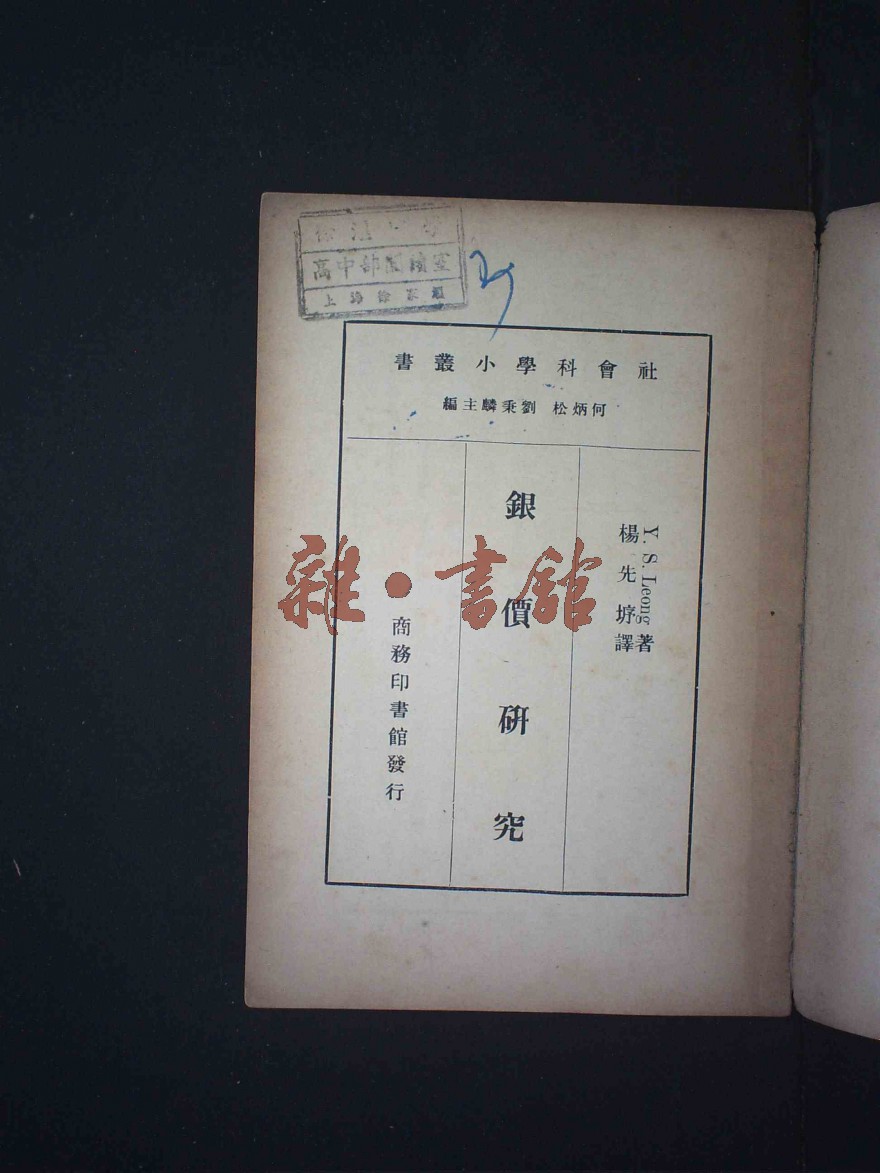 高中部閱讀室
上海徐家滙
社會科學小叢書
何炳松 劉秉麟主編
Y. S. Leong著
楊先垿譯
銀價研究
商務印書館發行
雜·書館